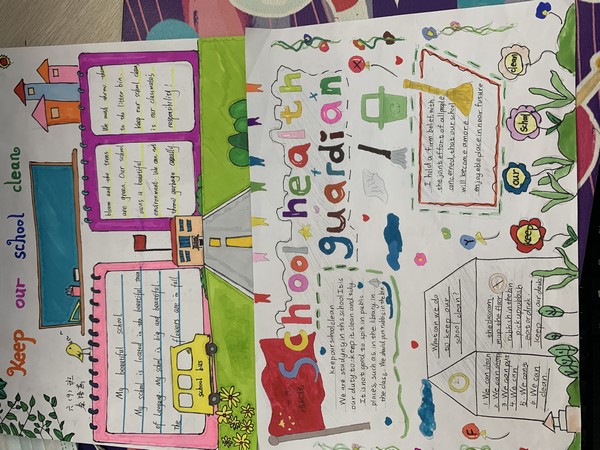 Keep our school clean
六(9)班
My beautiful school
My school is located in the beautiful town
of Leeyang. My school is big and beautiful.
The flowers are in full
bloom and the trees
are green. Our school
owns a beautiful
environment. We can not
throw garbage casually.
We must throw
to do litter bin.
keep our school clean
is our classmates
responsibility!
school bus
School health
guardian
keep our school clean
We are studying in this school. It is
our duty to keep it clean and tidy.
It is not good to spit in public
places such as in the library, in
the class. We should put rubbish in the bin
I hold a firm belief with
the joint effort of all people
concerned, that our school
will become a more
enjoyable place in near future
What can we do
to keep our
school clean?
1. We can clean the classroom
2. We can mop up the floor
3. We can put rubbish in the bin
4. We can pick up rubbish
5. We can not draw
6. We can keep our desks
clean!
keep
our
school
clean